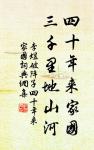 四十年来家國
三千里地山河
李煜破陣子四十年来
家國詞典網集